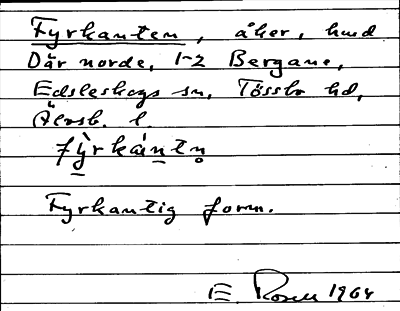 Fyrkanten, åker, hmd
Där norde, 1-2 Bergane,
Edsleskogs sn, Tössbo hd,
Älvsb. l.
fỳrkántn̥
Fyrkantig form.
E. Rosell 1964